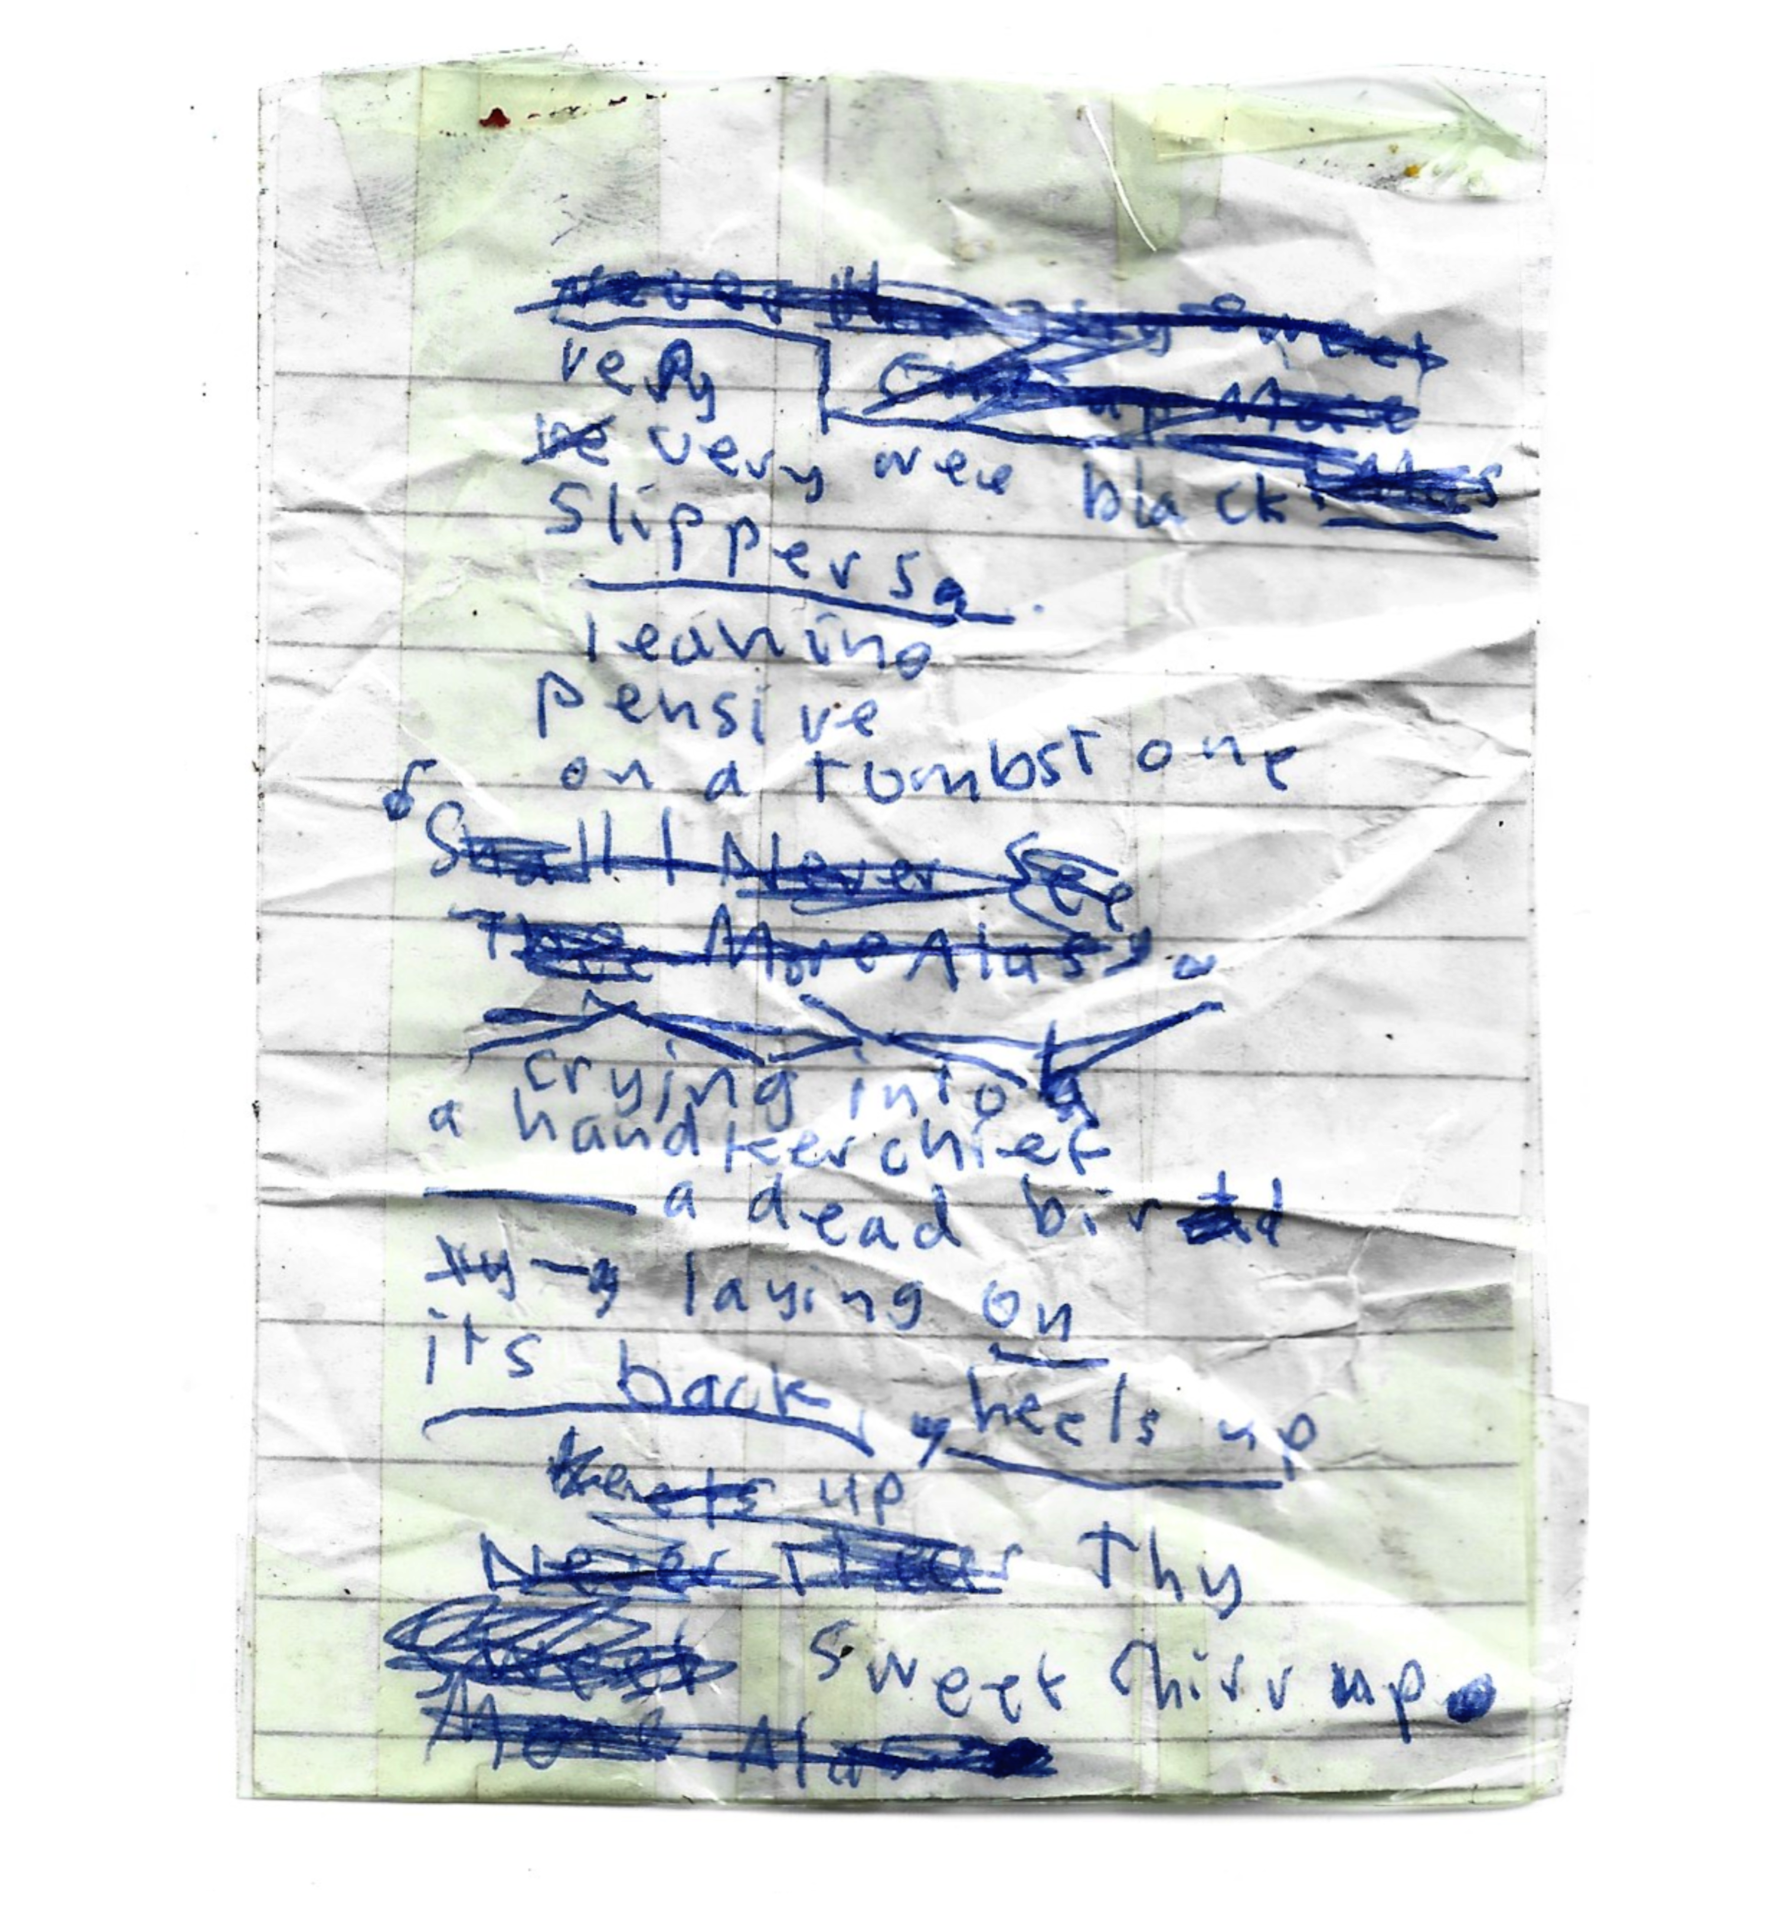 very
very wee black
slippers
leaning
pensive
on a tombstone
Shall I Never See
Thee More Alas
crying into
a handkerchief
a dead bird
laying on
its back, heels up
up
Never Hear Thy
Sweet sweet chirrup.
More Alas